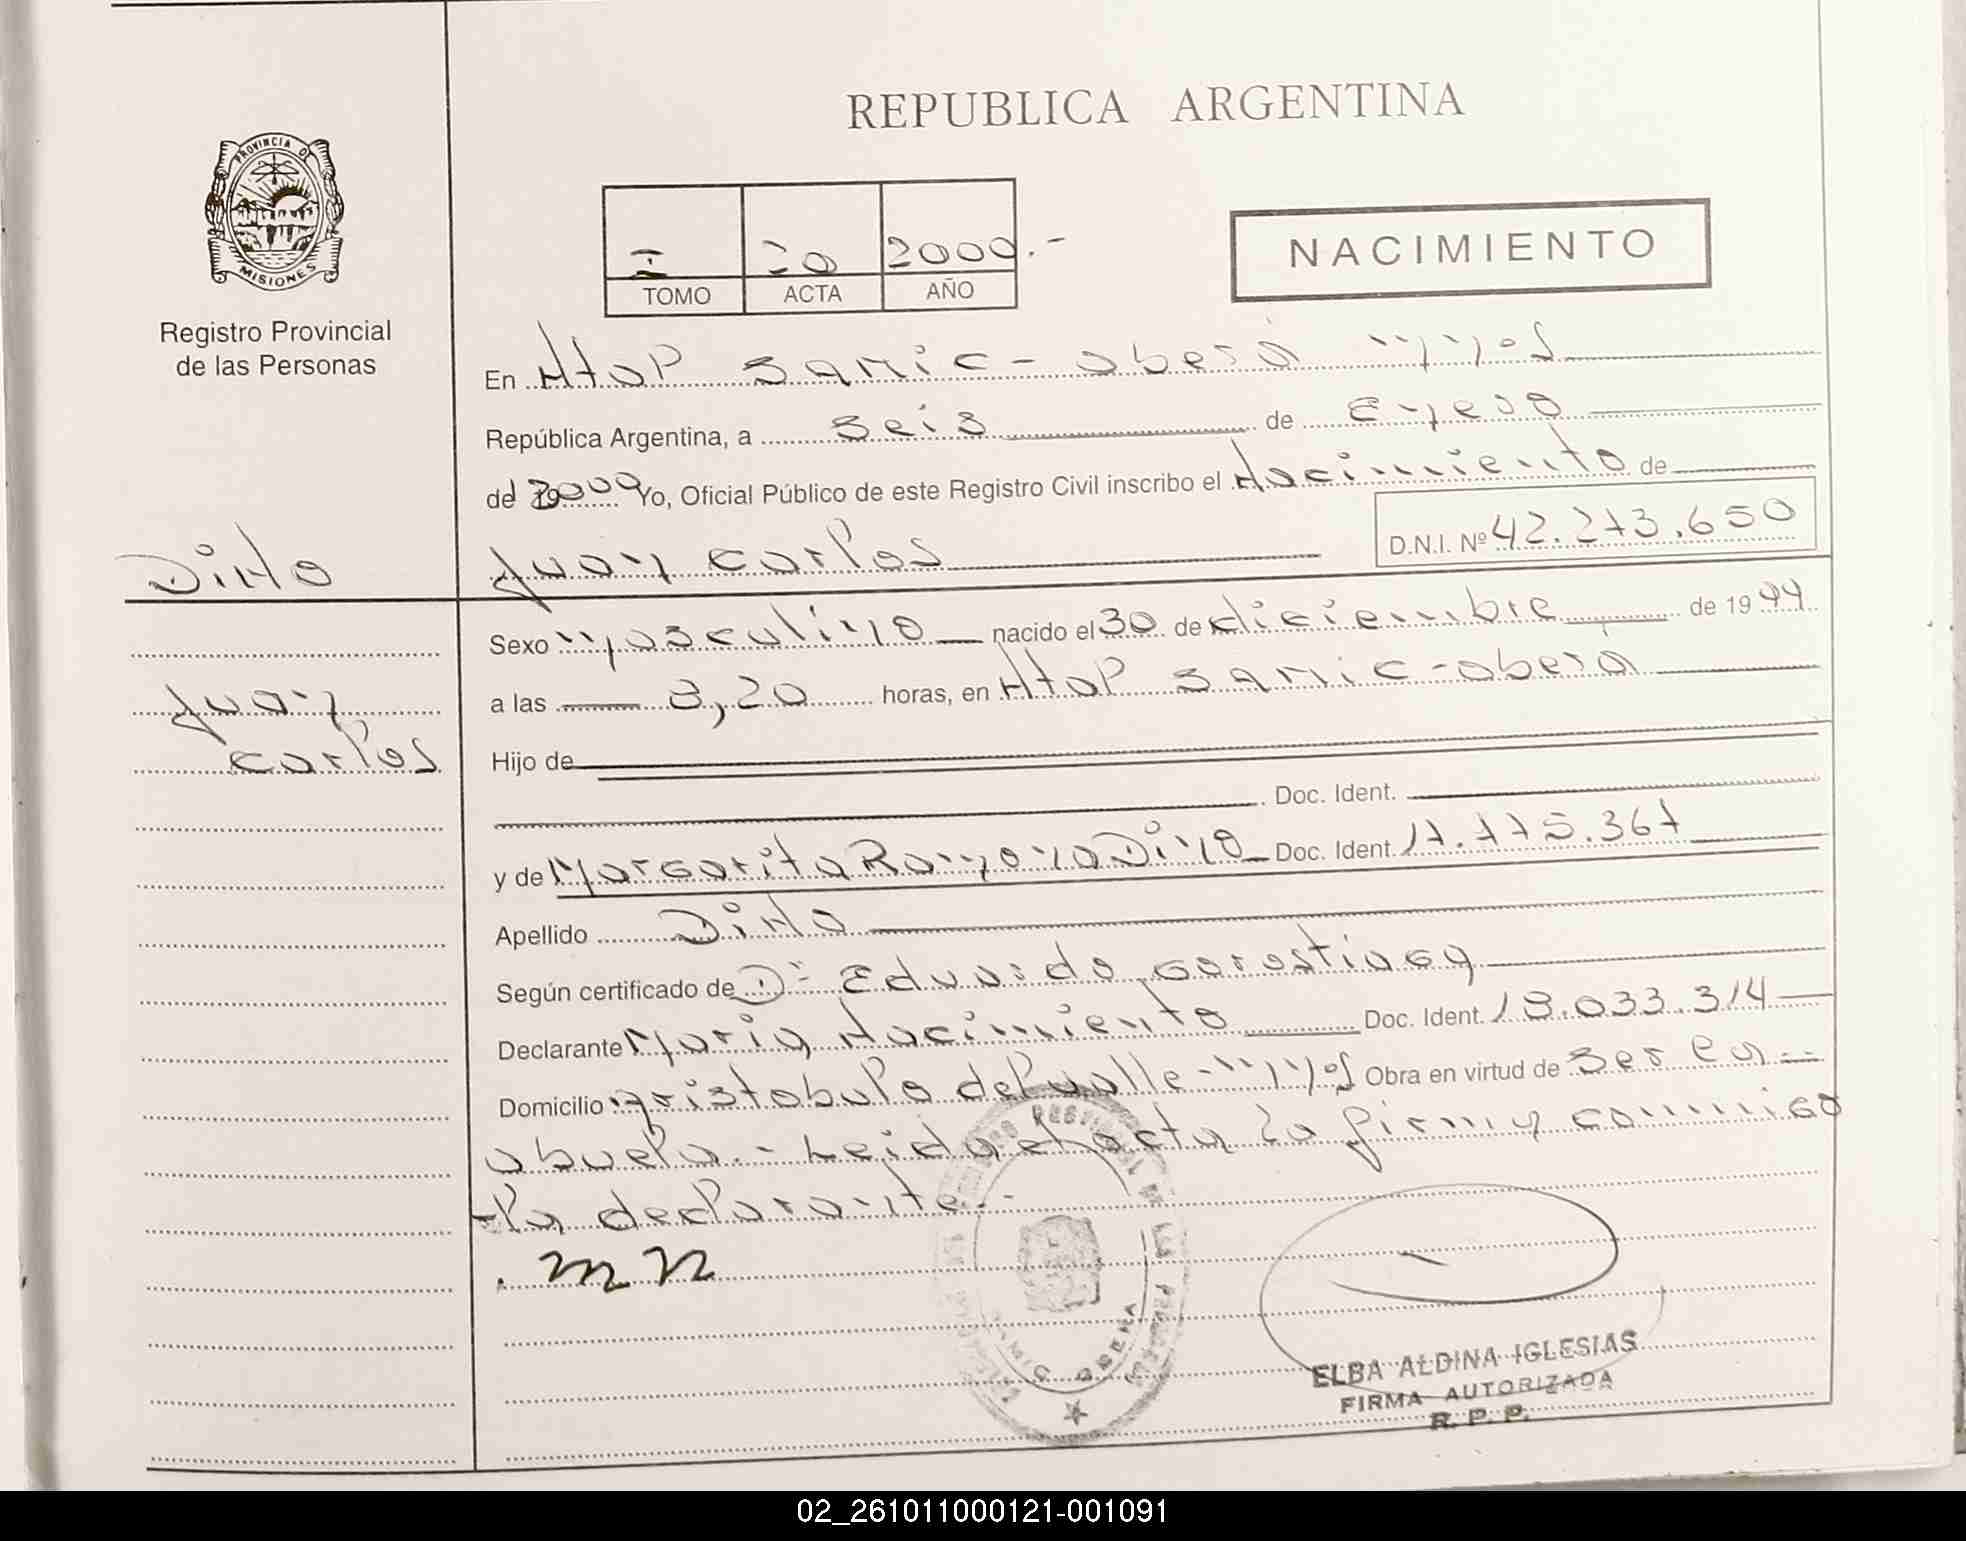 REPUBLICA ARGENTINA
PROVINCIA DE
MISIONES
Registro Provincial
de las Personas
I 20 2000.-
TOMO ACTA AÑO
NACIMIENTO
En Htop SAMIC - oberá
República Argentina, a seis de enero
del 2000 Yo, Oficial Público de este Registro Civil inscribo el Nacimiento de
D.N.I. Nº 42.273.650
Juan Carlos
Sexo masculino nacido el 30 de diciembre de 1999
a las 8,20 horas, en Htop SAMIC - oberá
Hijo de
Doc. Ident.
y de Margarita Ramona Dino Doc. Ident. 17.775.367
Apellido Dino
Según certificado de Dr Eduardo Gorostiaga
Declarante Maria Nacimiento Doc. Ident. 18.033.314
Domicilio Aristobulo del valle - Obra en virtud de ser la
abuela.- Leida el acta la firma conmigo
la declarante.-
. m n
Dino
Juan
Carlos
SAMIC OBERA
ELBA ALDINA IGLESIAS
FIRMA AUTORIZADA
R. P. P.
02_261011000121-001091